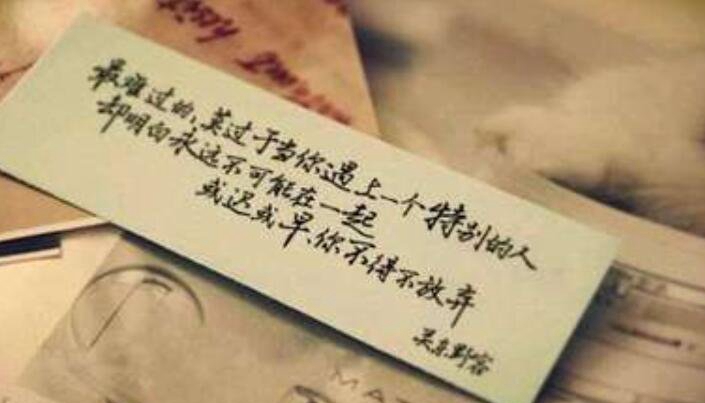 最难过的,莫过于当你遇上一个特别的人
却明白永远不可能在一起
或迟或早,你不得不放弃